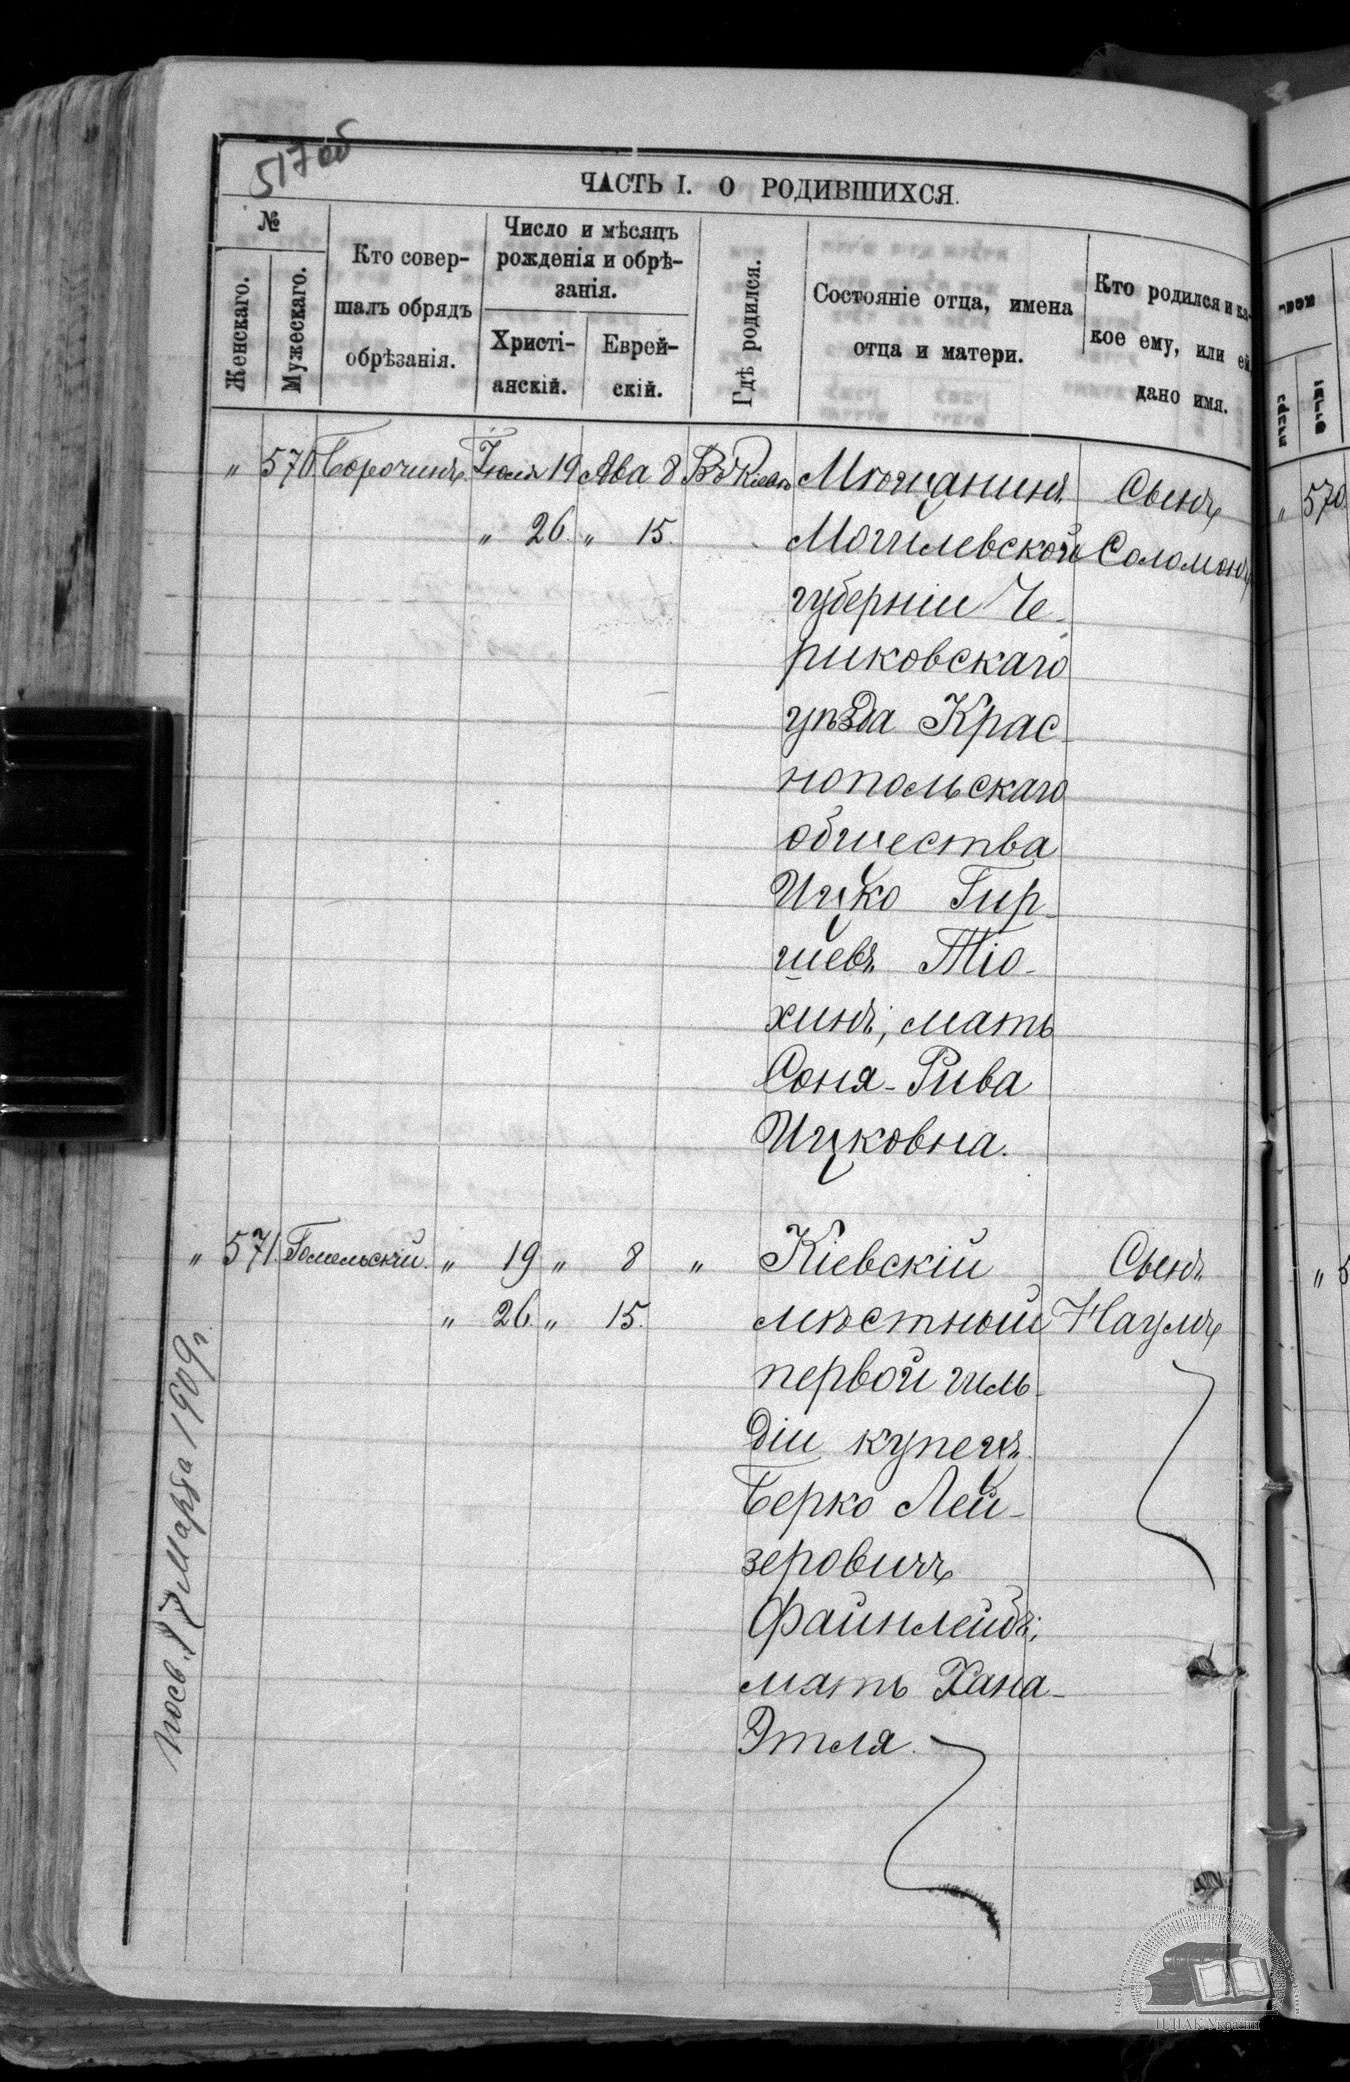 517об
ЧАСТЬ I. О РОДИВШИХСЯ.
№
Женскаго.
Мужескаго.
Кто совер-
шалъ обрядъ
обрѣзанія.
Число и мѣсяцъ
рожденія и обрѣ-
занія.
Христі-
анскій.
Еврей-
скій.
Гдѣ родился.
Состояніе отца, имена
отца и матери.
Кто родился и ка-
кое ему, или ей
дано имя.
" 570. Сорочинъ. Іюля 19 Ава 8 Въ Кіевѣ Мѣщанинъ Сынъ
" 26. " 15. Могилевской Соломонъ
губерніи Че-
риковскаго
уѣзда Крас-
нопольскаго
общества
Ицко Гир-
шевъ Тіо-
хинъ; мать
Соня-Рива
Ицковна.
" 571. Гомельскій. " 19 " 8 " Кіевскій Сынъ
" 26. " 15. мѣстный Наумъ
первой гиль-
діи купецъ
Берко Лей-
зеровичъ
Файнлейбъ;
мать Хана-
Этля.
17 Марта 1909 г.
" 570
"
ЦДІАК України